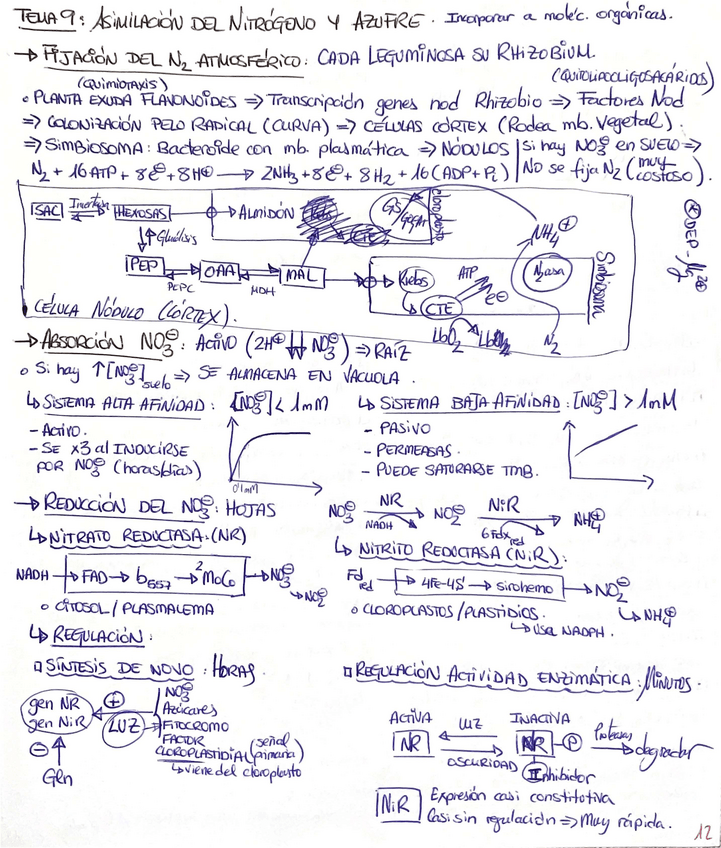 TEMA 9: ASIMILACIÓN DEL NITRÓGENO Y AZUFRE. Incorporar a moléc. orgánicas.
→ FIJACIÓN DEL N₂ ATMOSFÉRICO: CADA LEGUMINOSA SU RHIZOBIUM.
(QUIMIOTAXIS) (QUITOLIPOOLIGOSACÁRIDOS)
• PLANTA EXUDA FLAVONOIDES ⇒ Transcripción genes nod Rhizobio ⇒ Factores Nod
⇒ COLONIZACIÓN PELO RADICAL (CURVA) ⇒ CÉLULAS CÓRTEX (Rodea mb. Vegetal).
⇒ SIMBIOSOMA: Bacteroide con mb. plasmática ⇒ NÓDULOS | Si hay NO₃⊖ en SUELO ⇒
N₂ + 16 ATP + 8e⊖ + 8H⊕ → 2NH₃ + 8e⊖ + 8H₂ + 16(ADP + Pi) | No se fija N₂ (muy costoso).
SAC Invertasa HEXOSAS → Almidón CTE G5/GOGAT cloroplasto NH₄⊕
Glucólisis
PEP PEPC OAA MDH MAL Krebs ATP CTE e⊖ N₂asa Simbiosoma
ADP-Mg²⊕
LbO₂ N₂
CÉLULA NÓDULO (CÓRTEX).
→ ABSORCIÓN NO₃⊖: ACTIVO (2H⊕ ↓↓ NO₃⊖) ⇒ RAÍZ
• Si hay ↑[NO₃⊖]suelo ⇒ SE ALMACENA EN VACUOLA.
↳ SISTEMA ALTA AFINIDAD: [NO₃⊖] < 1mM
- ACTIVO.
- SE x3 al INDUCIRSE
POR NO₃⊖ (horas/días)
0'1mM
↳ SISTEMA BAJA AFINIDAD: [NO₃⊖] > 1mM
- PASIVO
- PERMEASAS.
- PUEDE SATURARSE TMB.
→ REDUCCIÓN DEL NO₃⊖: HOJAS
NO₃⊖ NR → NO₂⊖ NiR → NH₄⊕
NADH 6Fdx red
↳ NITRATO REDUCTASA (NR)
NADH → FAD → b₅₅₇ → 2MoCo → NO₃⊖
↘ NO₂⊖
• CITOSOL / PLASMALEMA
↳ NITRITO REDUCTASA (NiR):
Fd red → 4Fe-4S → sirohemo → NO₂⊖
↳ NH₄⊕
• CLOROPLASTOS/PLASTIDIOS.
↳ USA NADPH.
↳ REGULACIÓN:
□ SÍNTESIS DE NOVO: HORAS.
gen NR
gen NiR
⊕
NO₃⊖
Azúcares
LUZ → FITOCROMO
FACTOR
CLOROPLASTIDIAL (señal primaria)
↳ viene del cloroplasto
⊖
Gln
□ REGULACIÓN ACTIVIDAD ENZIMÁTICA: MINUTOS.
ACTIVA LUZ INACTIVA
NR OSCURIDAD NR - P Proteasas → degradar
Inhibidor
NiR Expresión casi constitutiva
Casi sin regulación ⇒ Muy rápida.
12